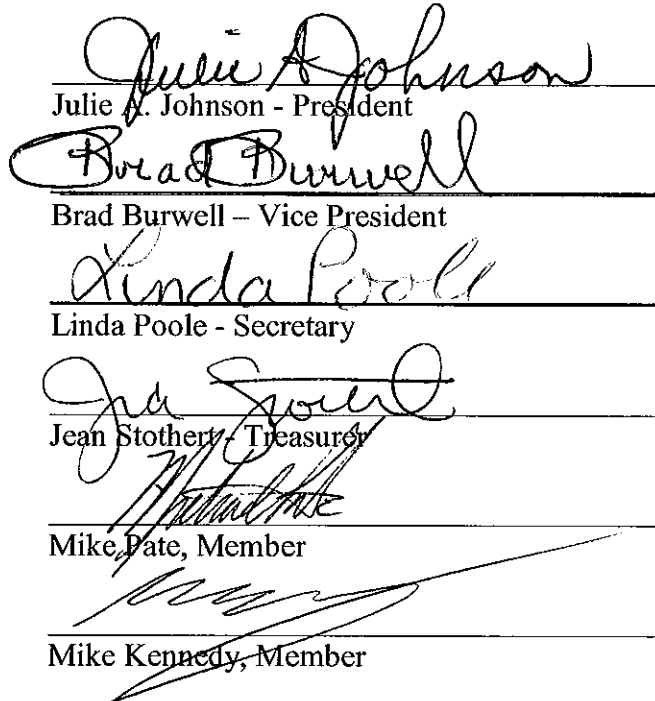 Julie A Johnson
Julie A. Johnson - President
Brad Burwell
Brad Burwell – Vice President
Linda Poole
Linda Poole - Secretary
Jean Stothert - Treasurer
Mike Pate, Member
Mike Kennedy, Member